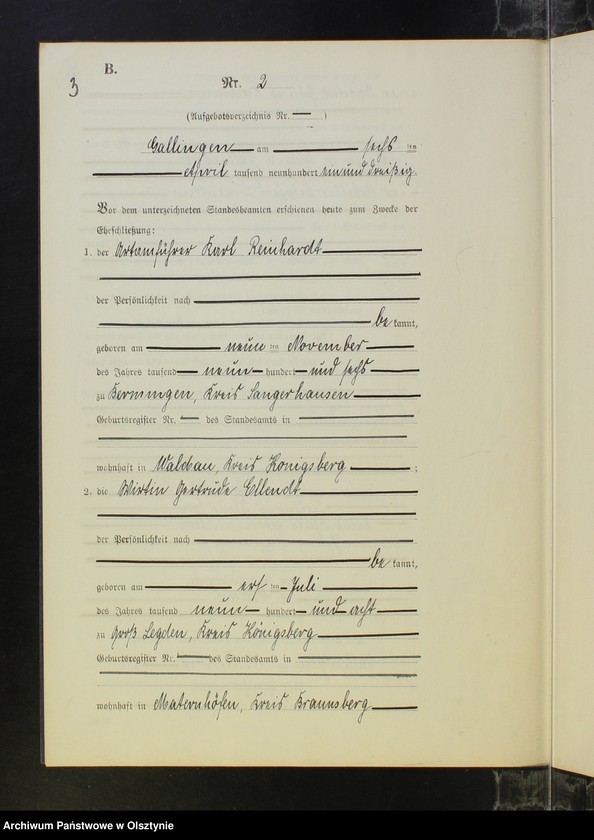 B.
3
Nr. 2
(Aufgebotsverzeichnis Nr. — )
Gallingen — am — sechs ten
— April tausend neunhundert ein und dreißig.
Vor dem unterzeichneten Standesbeamten erschienen heute zum Zwecke der
Eheschließung:
1. der Artamführer Karl Reinhardt —
der Persönlichkeit nach —
— be kannt,
geboren am — neun ten November —
des Jahres tausend — neun — hundert — und sechs —
zu Berningen, Kreis Sangerhausen —
Geburtsregister Nr. — des Standesamts in —
wohnhaft in Waldau, Kreis Königsberg — ;
2. die Wirtin Gertrude Ellendt —
der Persönlichkeit nach —
— be kannt,
geboren am — elf ten — Juli —
des Jahres tausend neun — hundert — und acht —
zu Groß Legden, Kreis Königsberg —
Geburtsregister Nr. — des Standesamts in —
wohnhaft in Maternhöfen, Kreis Braunsberg —
Archiwum Państwowe w Olsztynie